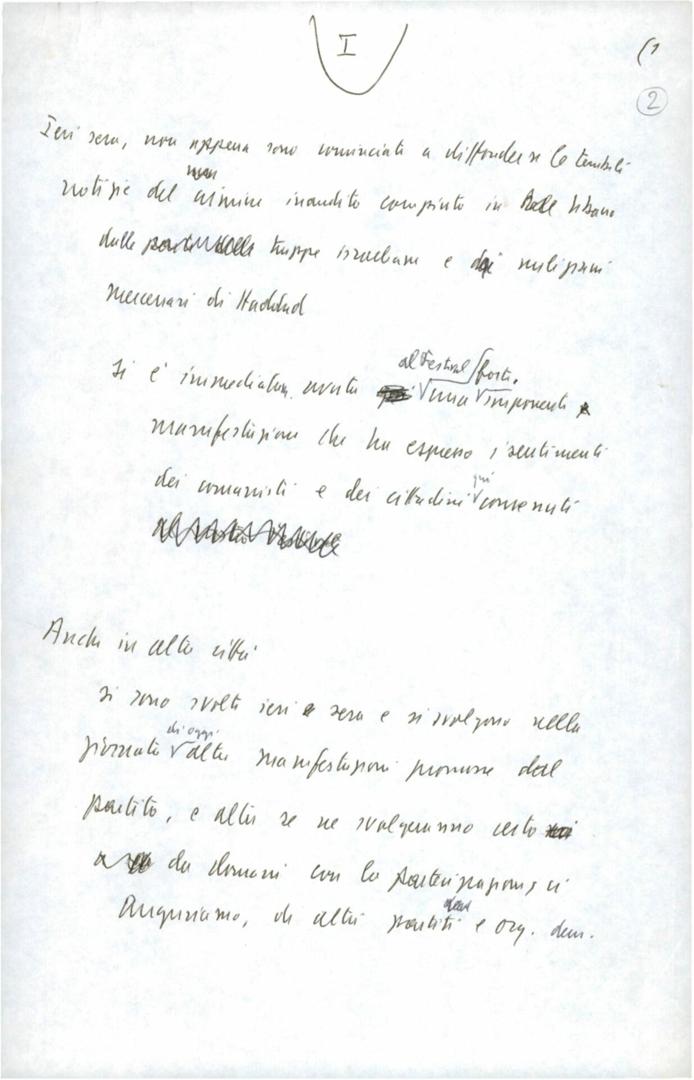 I
(1
2
Ieri sera, non appena sono cominciate a diffondersi le terribili
notizie del crimine inaudito compiuto in Libano
dalle truppe israeliane e dei miliziani
mercenari di Haddad
si è immediatam. avuta al Festival una forte, imponente
manifestazione che ha espresso i sentimenti
dei comunisti e dei cittadini qui convenuti
Anche in altre città
si sono svolte ieri sera e si svolgono nella
giornata di oggi altre manifestazioni promosse dal
partito, e altre se ne svolgeranno certo
da domani con la partecipazione, ci
auguriamo, di altri partiti dem e org. dem.